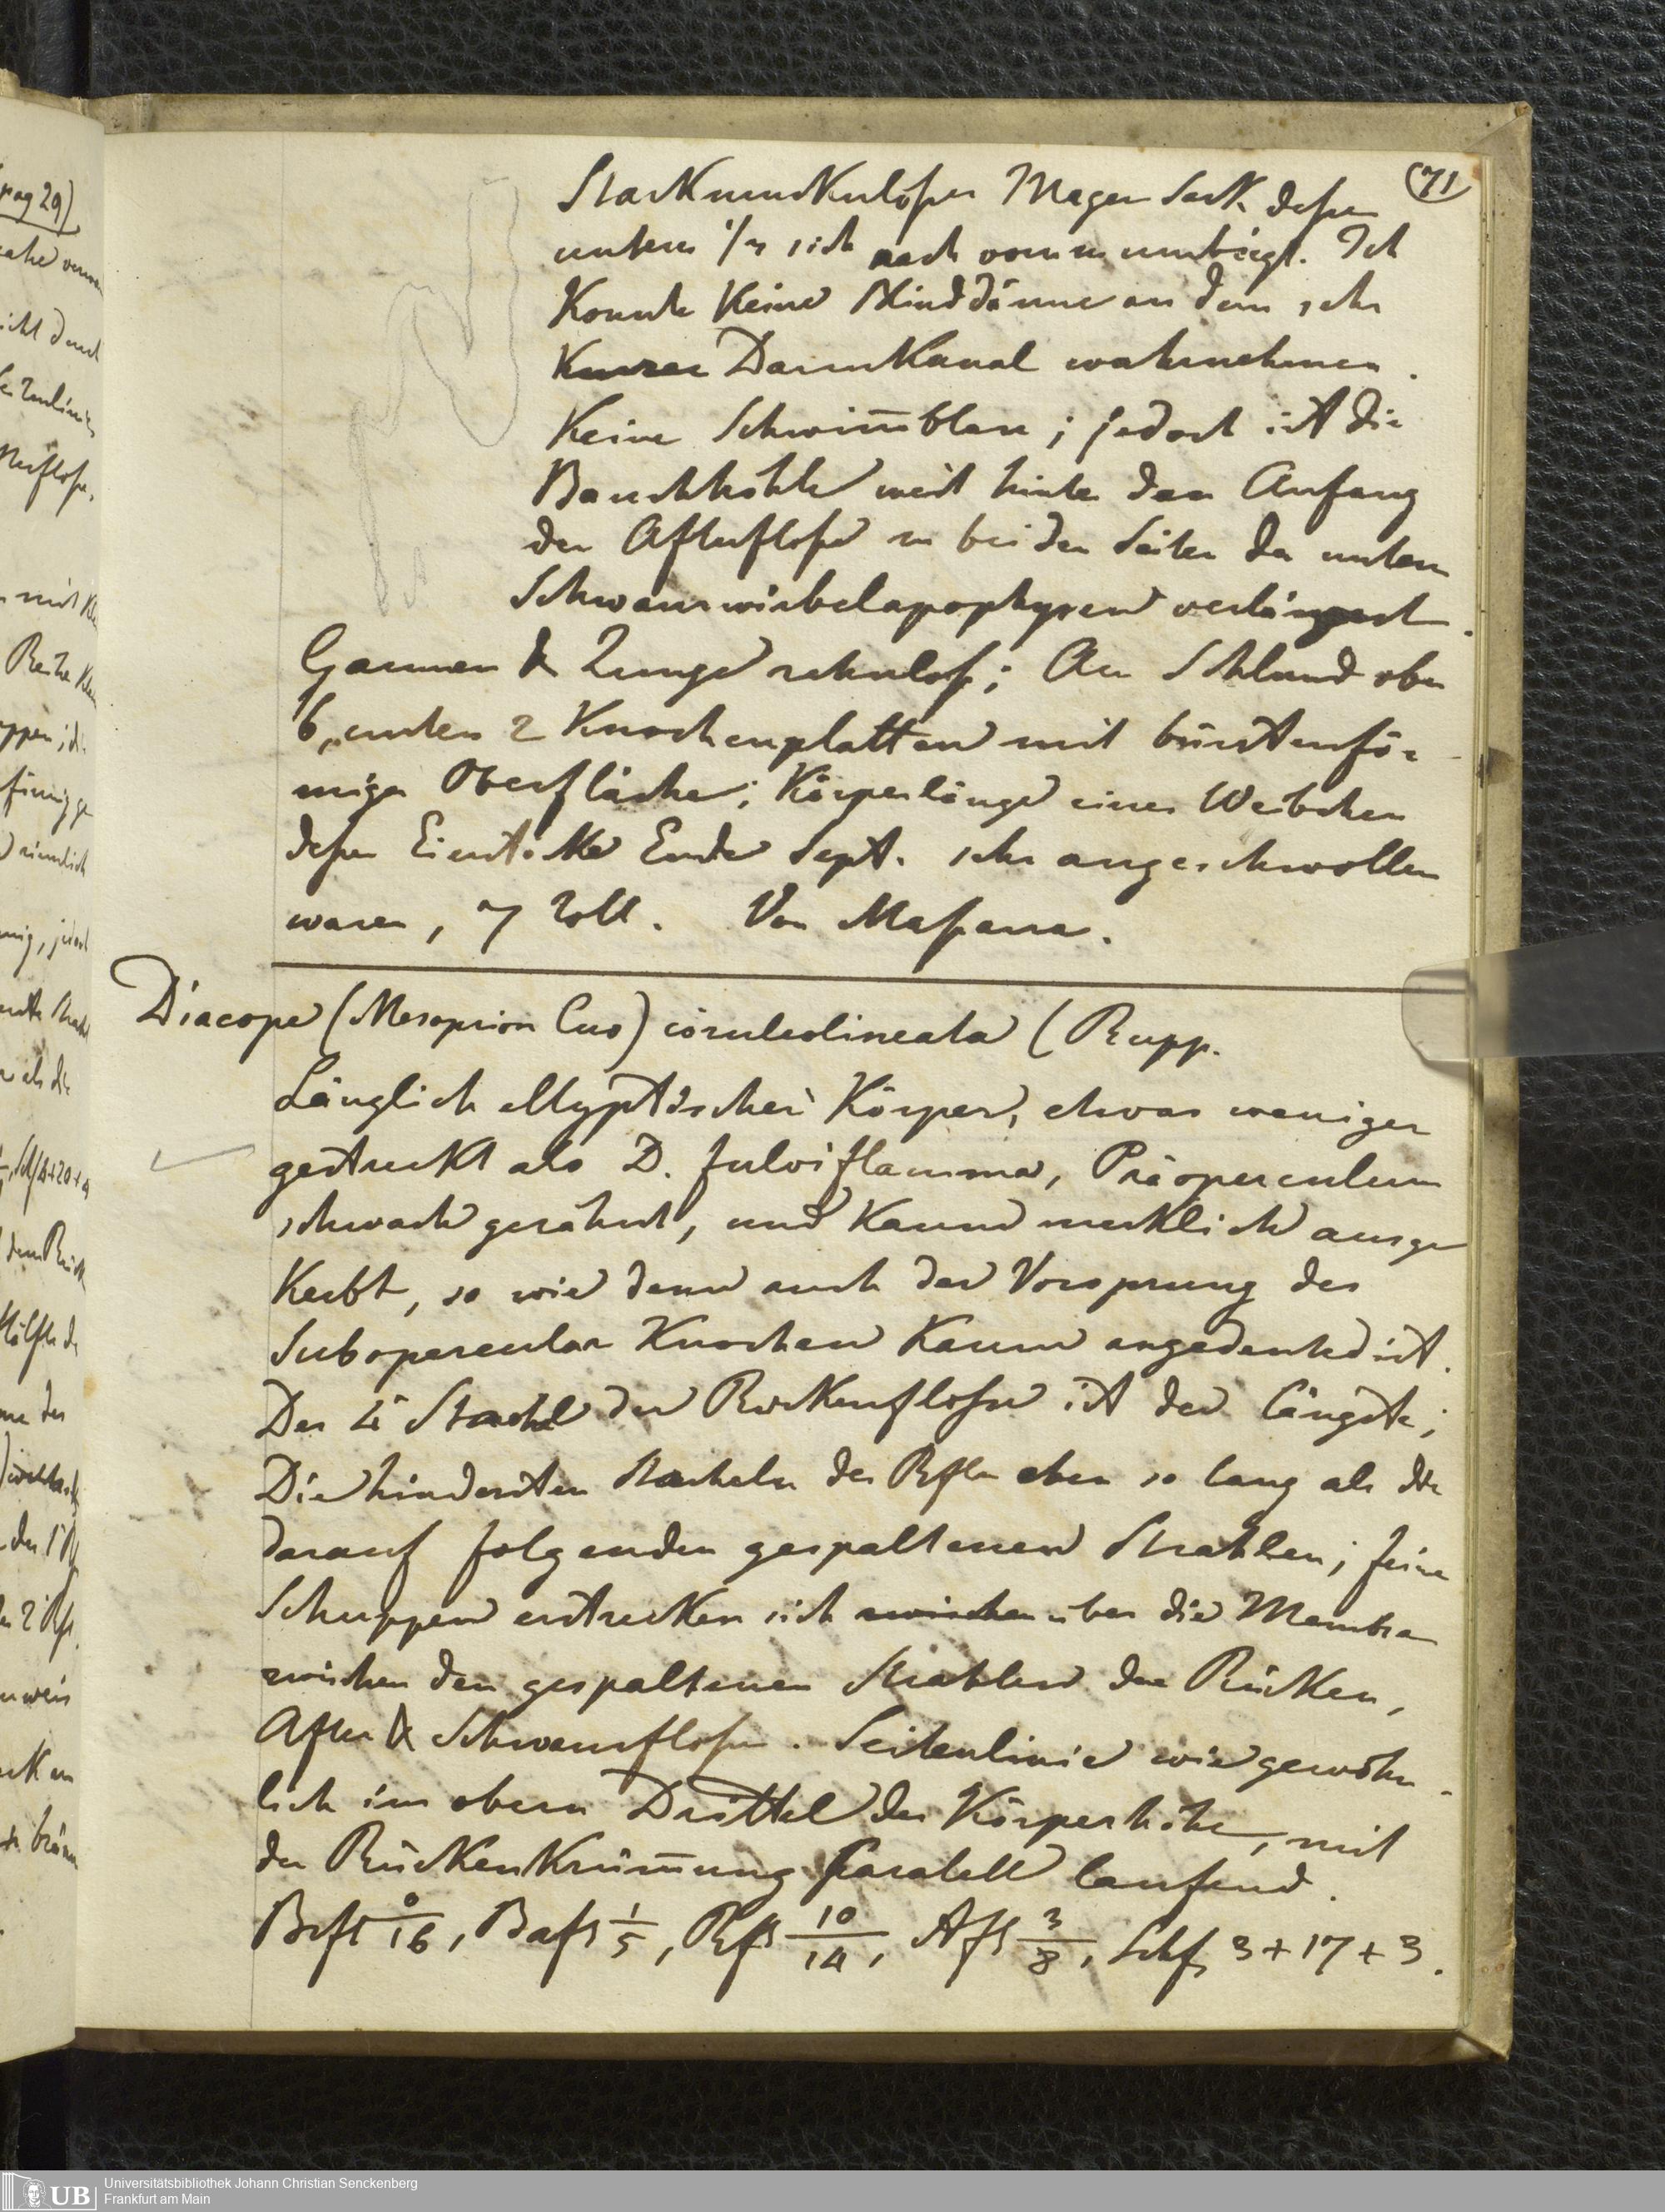 71
Stark muskuloser Magen Sack deßen
unteres 1/3 sich nach vornen umbiegt. Ich
konnte keine Blinddärme an dem sehr
kurzen Darmkanal wahrnehmen.
Keine Schwim̄blase; jedoch ist die
Bauchhöhle weit hinter den Anfang
der Afterfloße zu beiden Seiten der untern
Schwanzwirbelapophysen verlängert.
Gaumen & Zunge zahnlos; Am Schlund oben
6, unten 2 Knochenplatten mit bürstenför-
miger Oberfläche; Körperlänge eines Weibchen
deßen Eierstöcke Ende Sept. sehr angeschwollen
waren, 7 Zoll. Von Maßaua.
Diacope (Mesoprion Cuv) cöruleolineata (Rupp.
Länglich elliptischer Körper, etwas weniger
gestreckt als D. fulviflamma, Präoperculum
schwach gezähnt, und kaum merklich ausge
kerbt, so wie denn auch der Vorsprung des
Subopercular Knochen kaum angedeutet ist.
Der 4t Stachel der Rückenfloße ist der längste;
Die hindersten Stacheln der Rfle eben so lang als die
darauf folgenden gespaltenen Strahlen; feine
Schuppen erstrecken sich zwischen über die Membran
zwischen den gespaltenen Strahlen der Rücken,
After & Schwanzfloße. Seitenlinie wie gewöhn-
lich im obern Drittel der Körperhöhe, mit
der Rückenkrüm̄ung paralell laufend.
Brfl 0/16, Bafl 1/5, Rfl 10/14, Afl 3/8, Schfl 3+17+3.
pag 29)
Universitätsbibliothek Johann Christian Senckenberg
Frankfurt am Main
UB